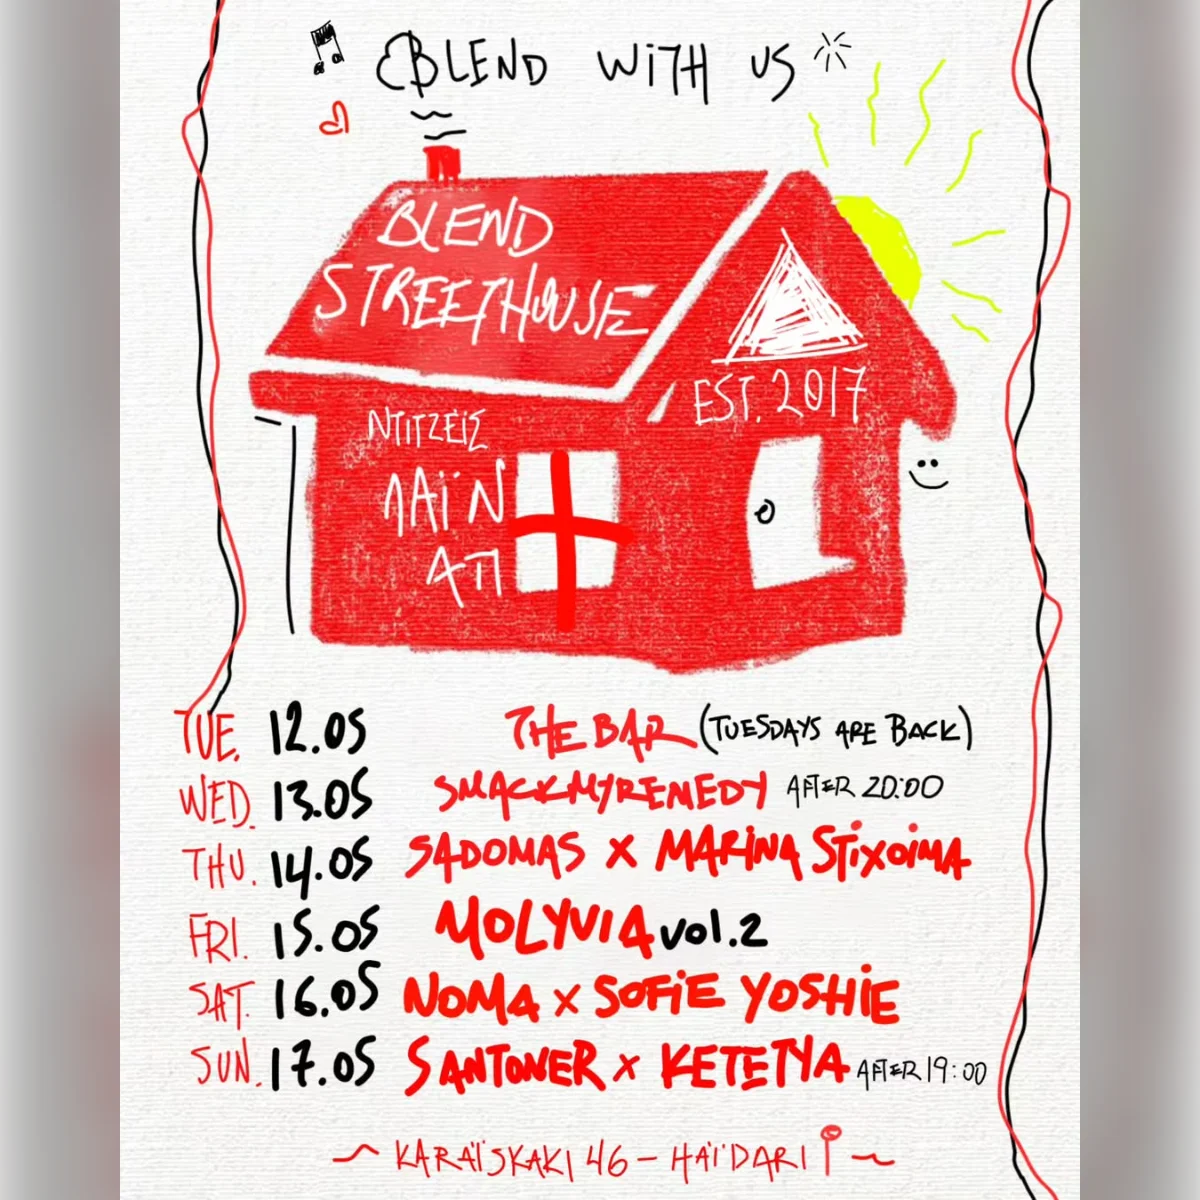 BLEND WITH US
BLEND
STREETHOUSE
EST. 2017
ΝΤΙΤΖΕΙΣ
ΛΑΪΝ
ΑΠ
TUE. 12.05 THE BAR (TUESDAYS ARE BACK)
WED. 13.05 SMACKMYREMEDY AFTER 20:00
THU. 14.05 SADOMAS X MARINA STIXOIMA
FRI. 15.05 MOLYVIA vol.2
SAT. 16.05 NOMA X SOFIE YOSHIE
SUN. 17.05 SANTONER X KETETYA AFTER 19:00
~ KARAÏSKAKI 46 - HAÏDARI ~